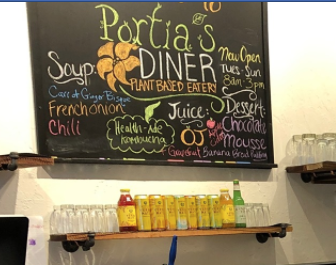 Portia's
DINER
PLANT BASED EATERY
Now Open
Tues-Sun
8am-3pm
Soup:
Carrot Ginger Bisque
French onion
Chili
Health-Ade
Kombucha
Juice:
OJ
Grapefruit
Dessert:
Chocolate
Mousse
Banana Bread Pudding